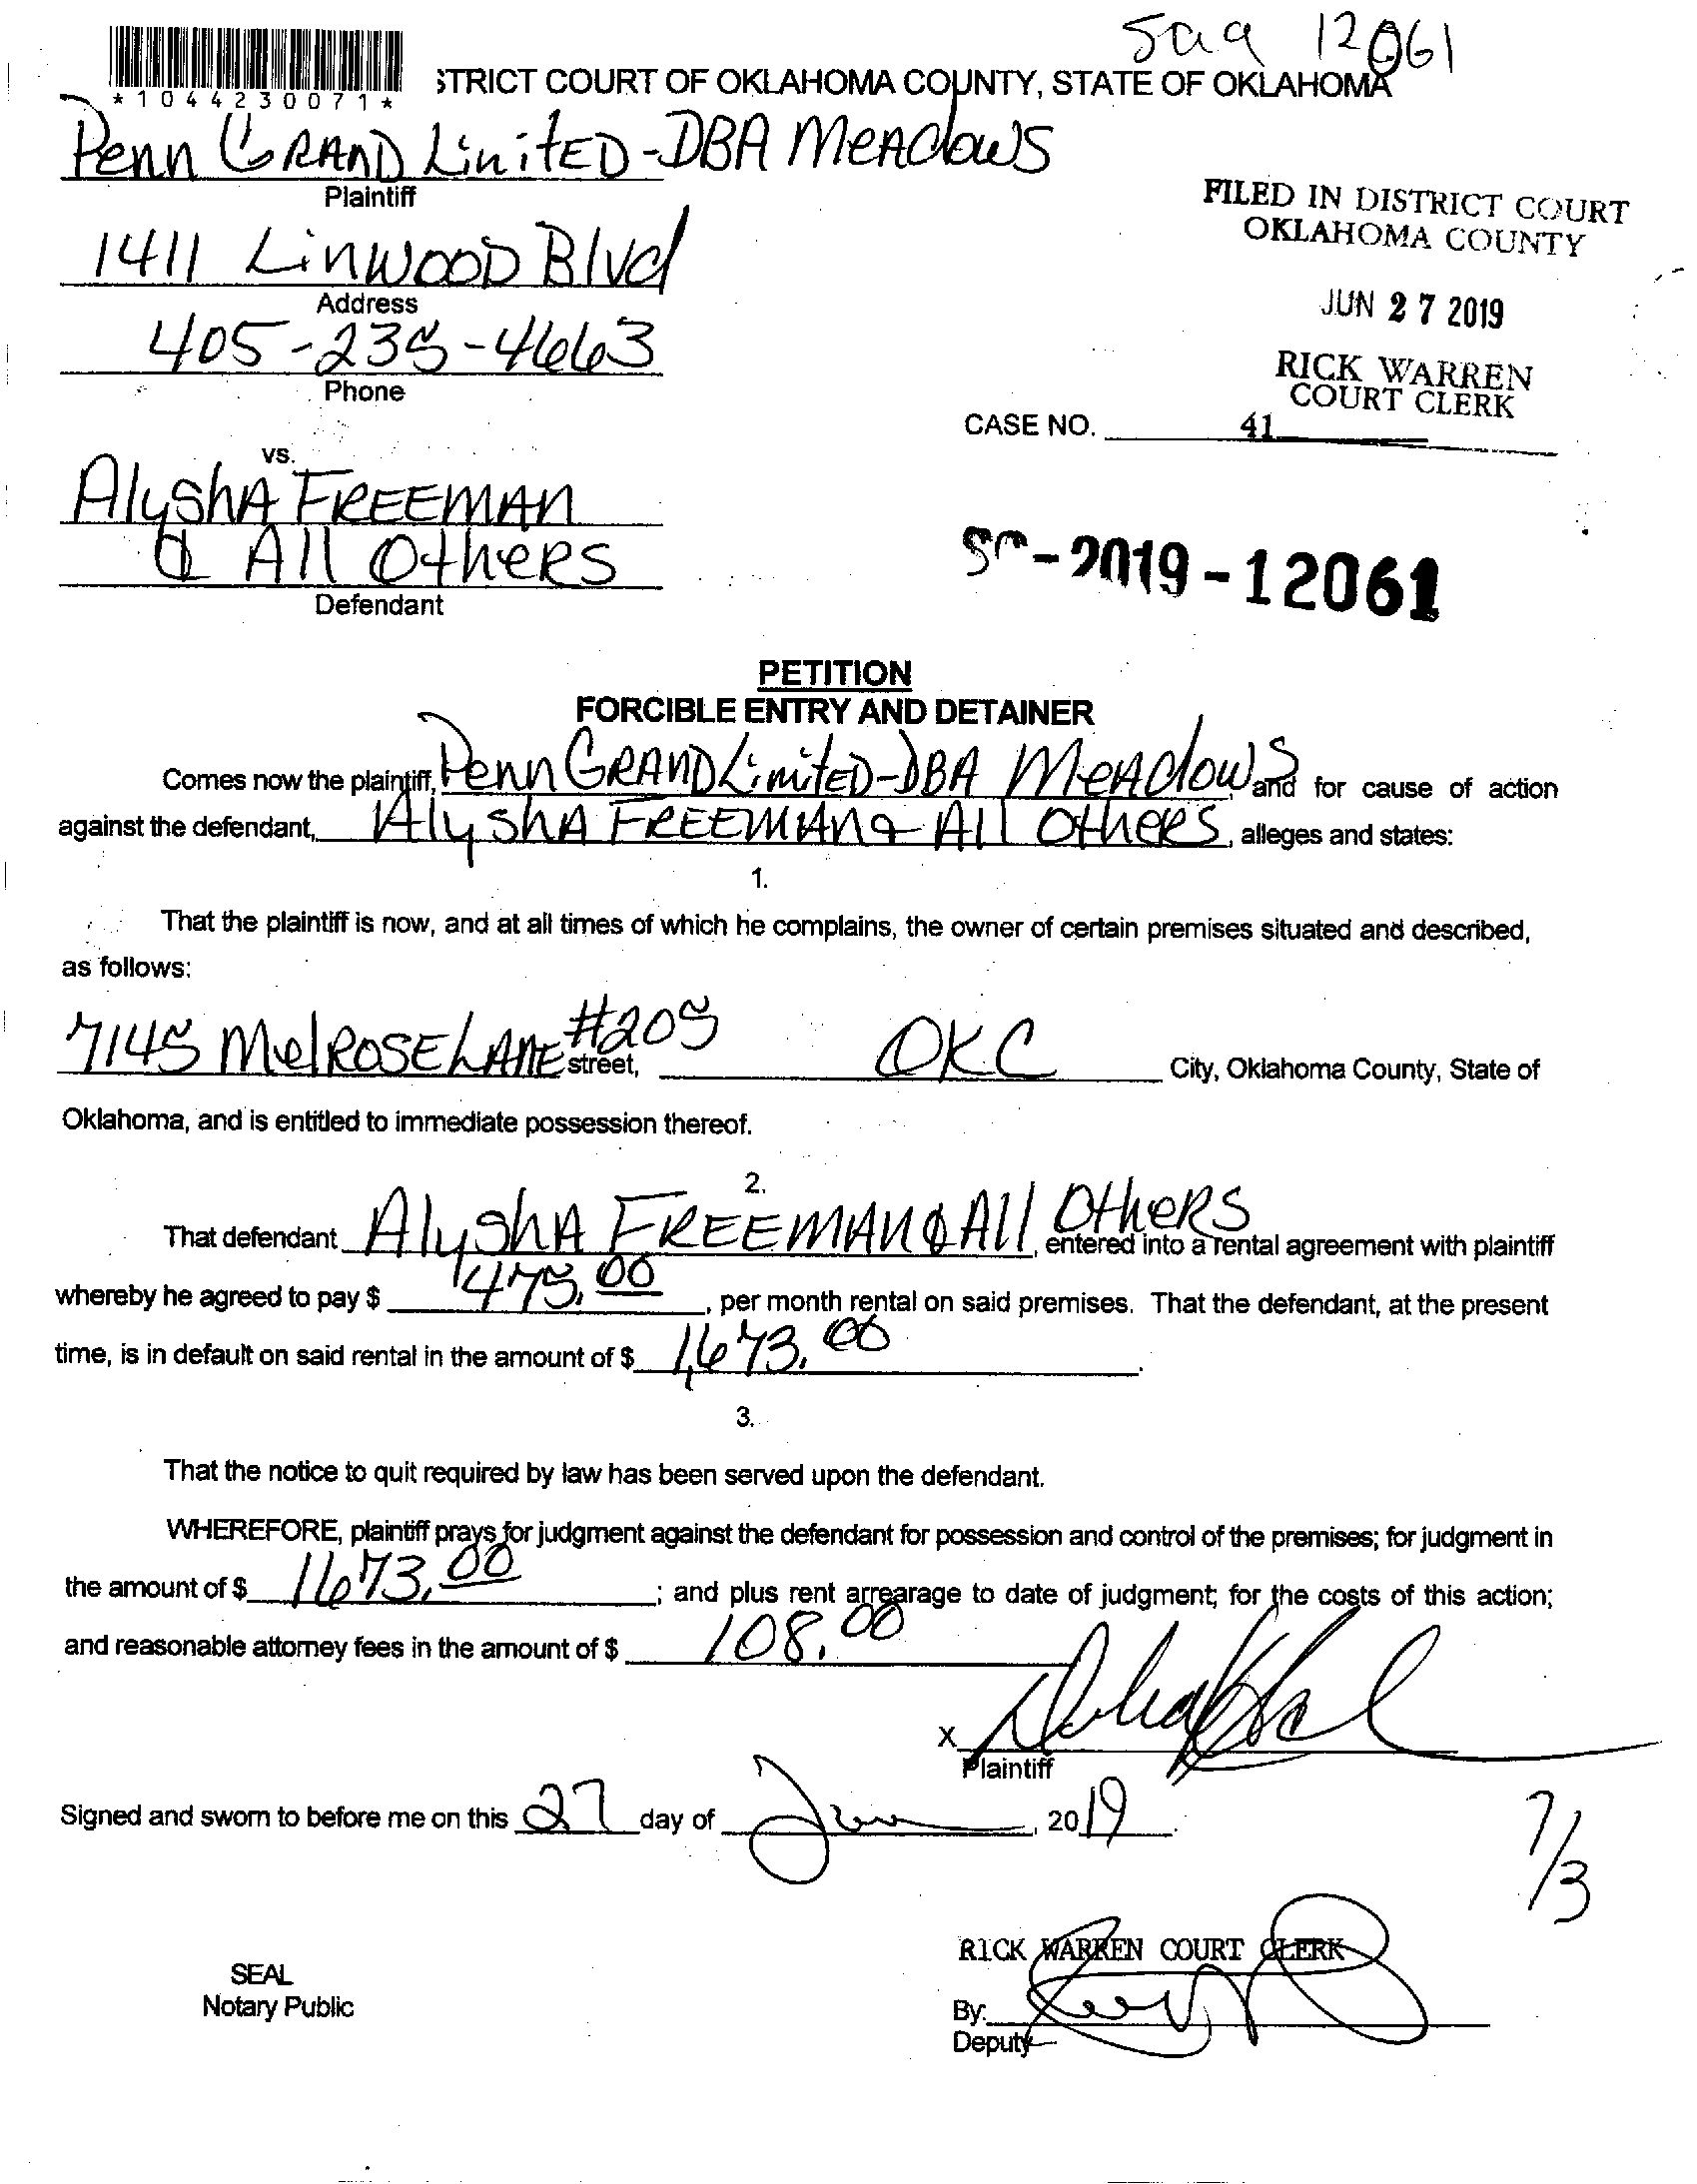 Saq 12061
*1044230071*
STRICT COURT OF OKLAHOMA COUNTY, STATE OF OKLAHOMA
Penn GRAND LimitED-DBA MeAdowS
Plaintiff
FILED IN DISTRICT COURT
OKLAHOMA COUNTY
1411 LinWOOD Blvd
Address
JUN 27 2019
405-235-4663
Phone
RICK WARREN
COURT CLERK
CASE NO.
41
vs.
AlyshA FREEMAN
& All OtheRS
Defendant
SC-2019-12061
PETITION
FORCIBLE ENTRY AND DETAINER
Comes now the plaintiff, Penn GRAND LimitED-DBA MeAdowS, and for cause of action
against the defendant, AlyshA FREEMAN & All OtheRS, alleges and states:
1.
That the plaintiff is now, and at all times of which he complains, the owner of certain premises situated and described,
as follows:
7145 MelROSE LANE #205 street, OKC City, Oklahoma County, State of
Oklahoma, and is entitled to immediate possession thereof.
2.
That defendant AlyshA FREEMAN & All OtheRS, entered into a rental agreement with plaintiff
whereby he agreed to pay $ 475.00, per month rental on said premises. That the defendant, at the present
time, is in default on said rental in the amount of $ 1,673.00.
3.
That the notice to quit required by law has been served upon the defendant.
WHEREFORE, plaintiff prays for judgment against the defendant for possession and control of the premises; for judgment in
the amount of $ 1673.00; and plus rent arrearage to date of judgment; for the costs of this action;
and reasonable attorney fees in the amount of $ 108.00
X
Plaintiff
Signed and sworn to before me on this 27 day of June, 2019.
7/3
RICK WARREN COURT CLERK
SEAL
Notary Public
By:
Deputy